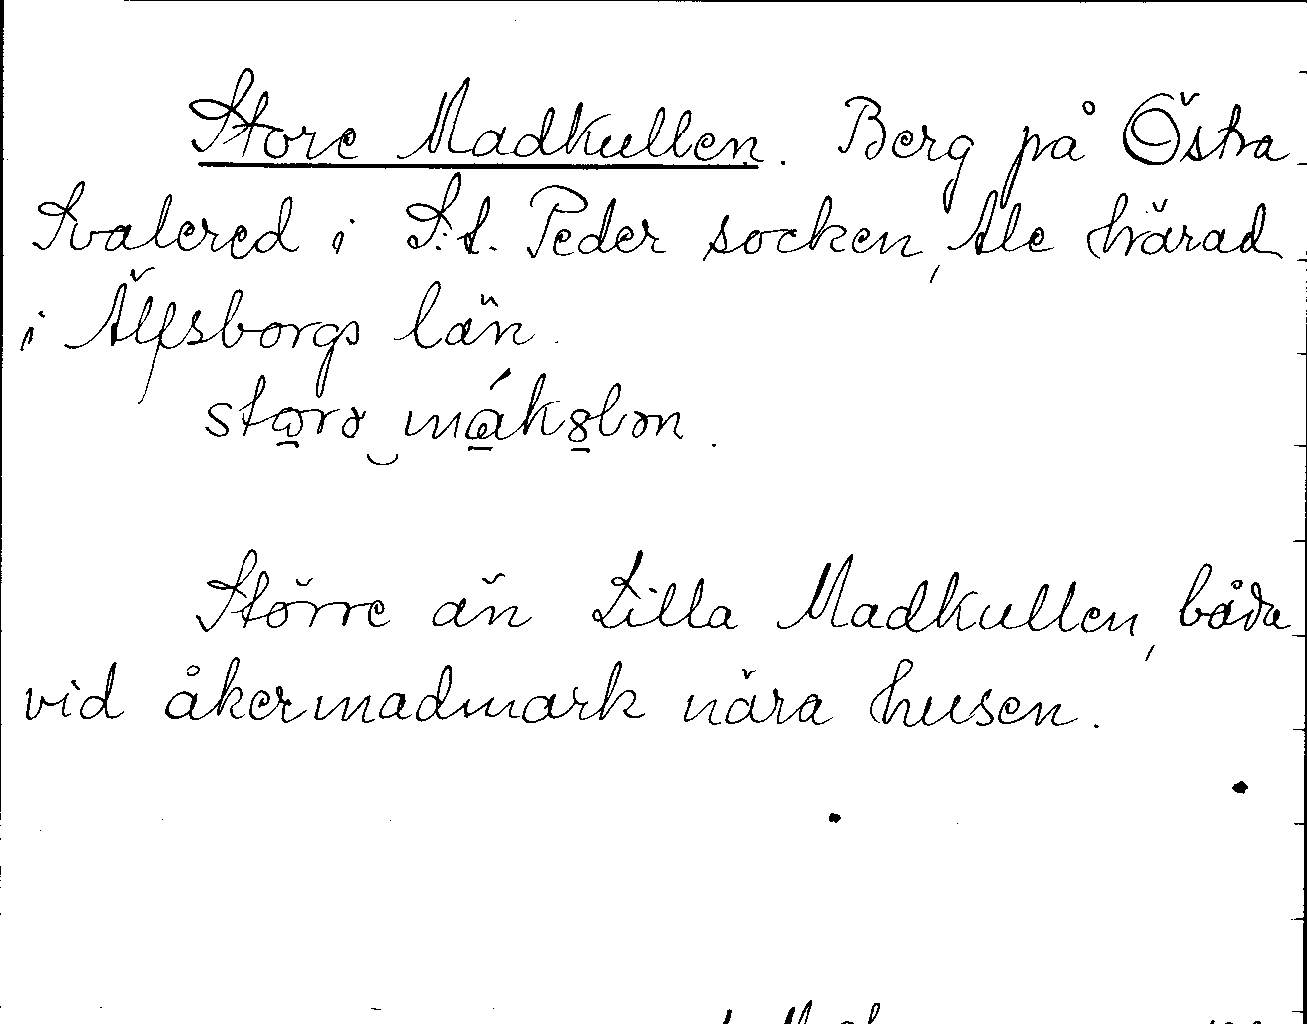 Store Madkullen. Berg på Östra
Svalered i S:t. Peder socken, Ale härad
i Älfsborgs län.
Större än Lilla Madkullen, båda
vid åkermadmark nära husen.